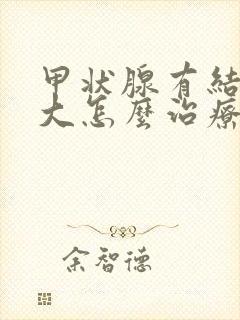 甲状腺有結
大怎麼治療
余智德